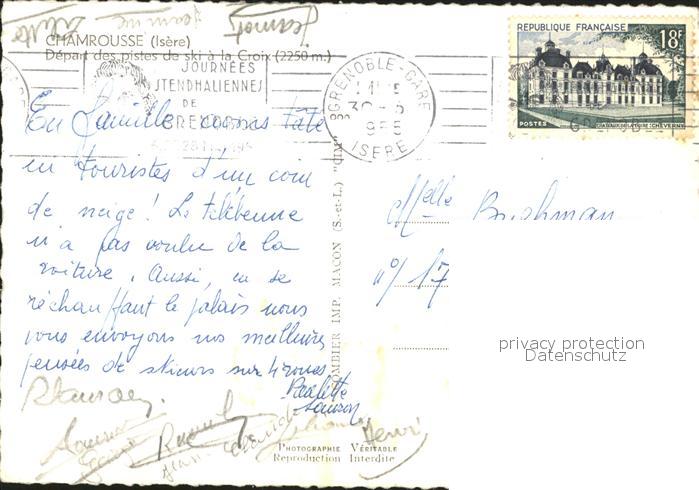 Jeannot
CHAMROUSSE (Isère)
Départ des pistes de ski à la Croix (2250 m.)
JOURNÉES
STENDHALIENNES
DE
GRENOBLE
GRENOBLE-GARE
30-5
1955
ISERE
REPUBLIQUE FRANÇAISE
18F
POSTES
CHEVERNY
En famille avons tâté
en touristes d'un coin
de neige ! Le télébenne
n'a pas voulu de la
voiture. Aussi, en se
réchauffant le palais nous
vous envoyons nos meilleures
pensées de skieurs sur 4 roues
Paulette
Melle Bushman
n° 17
COMBIER IMP. MACON (S.-et-L.) "CIM"
Henri
PHOTOGRAPHIE VÉRITABLE
Reproduction Interdite
privacy protection
Datenschutz